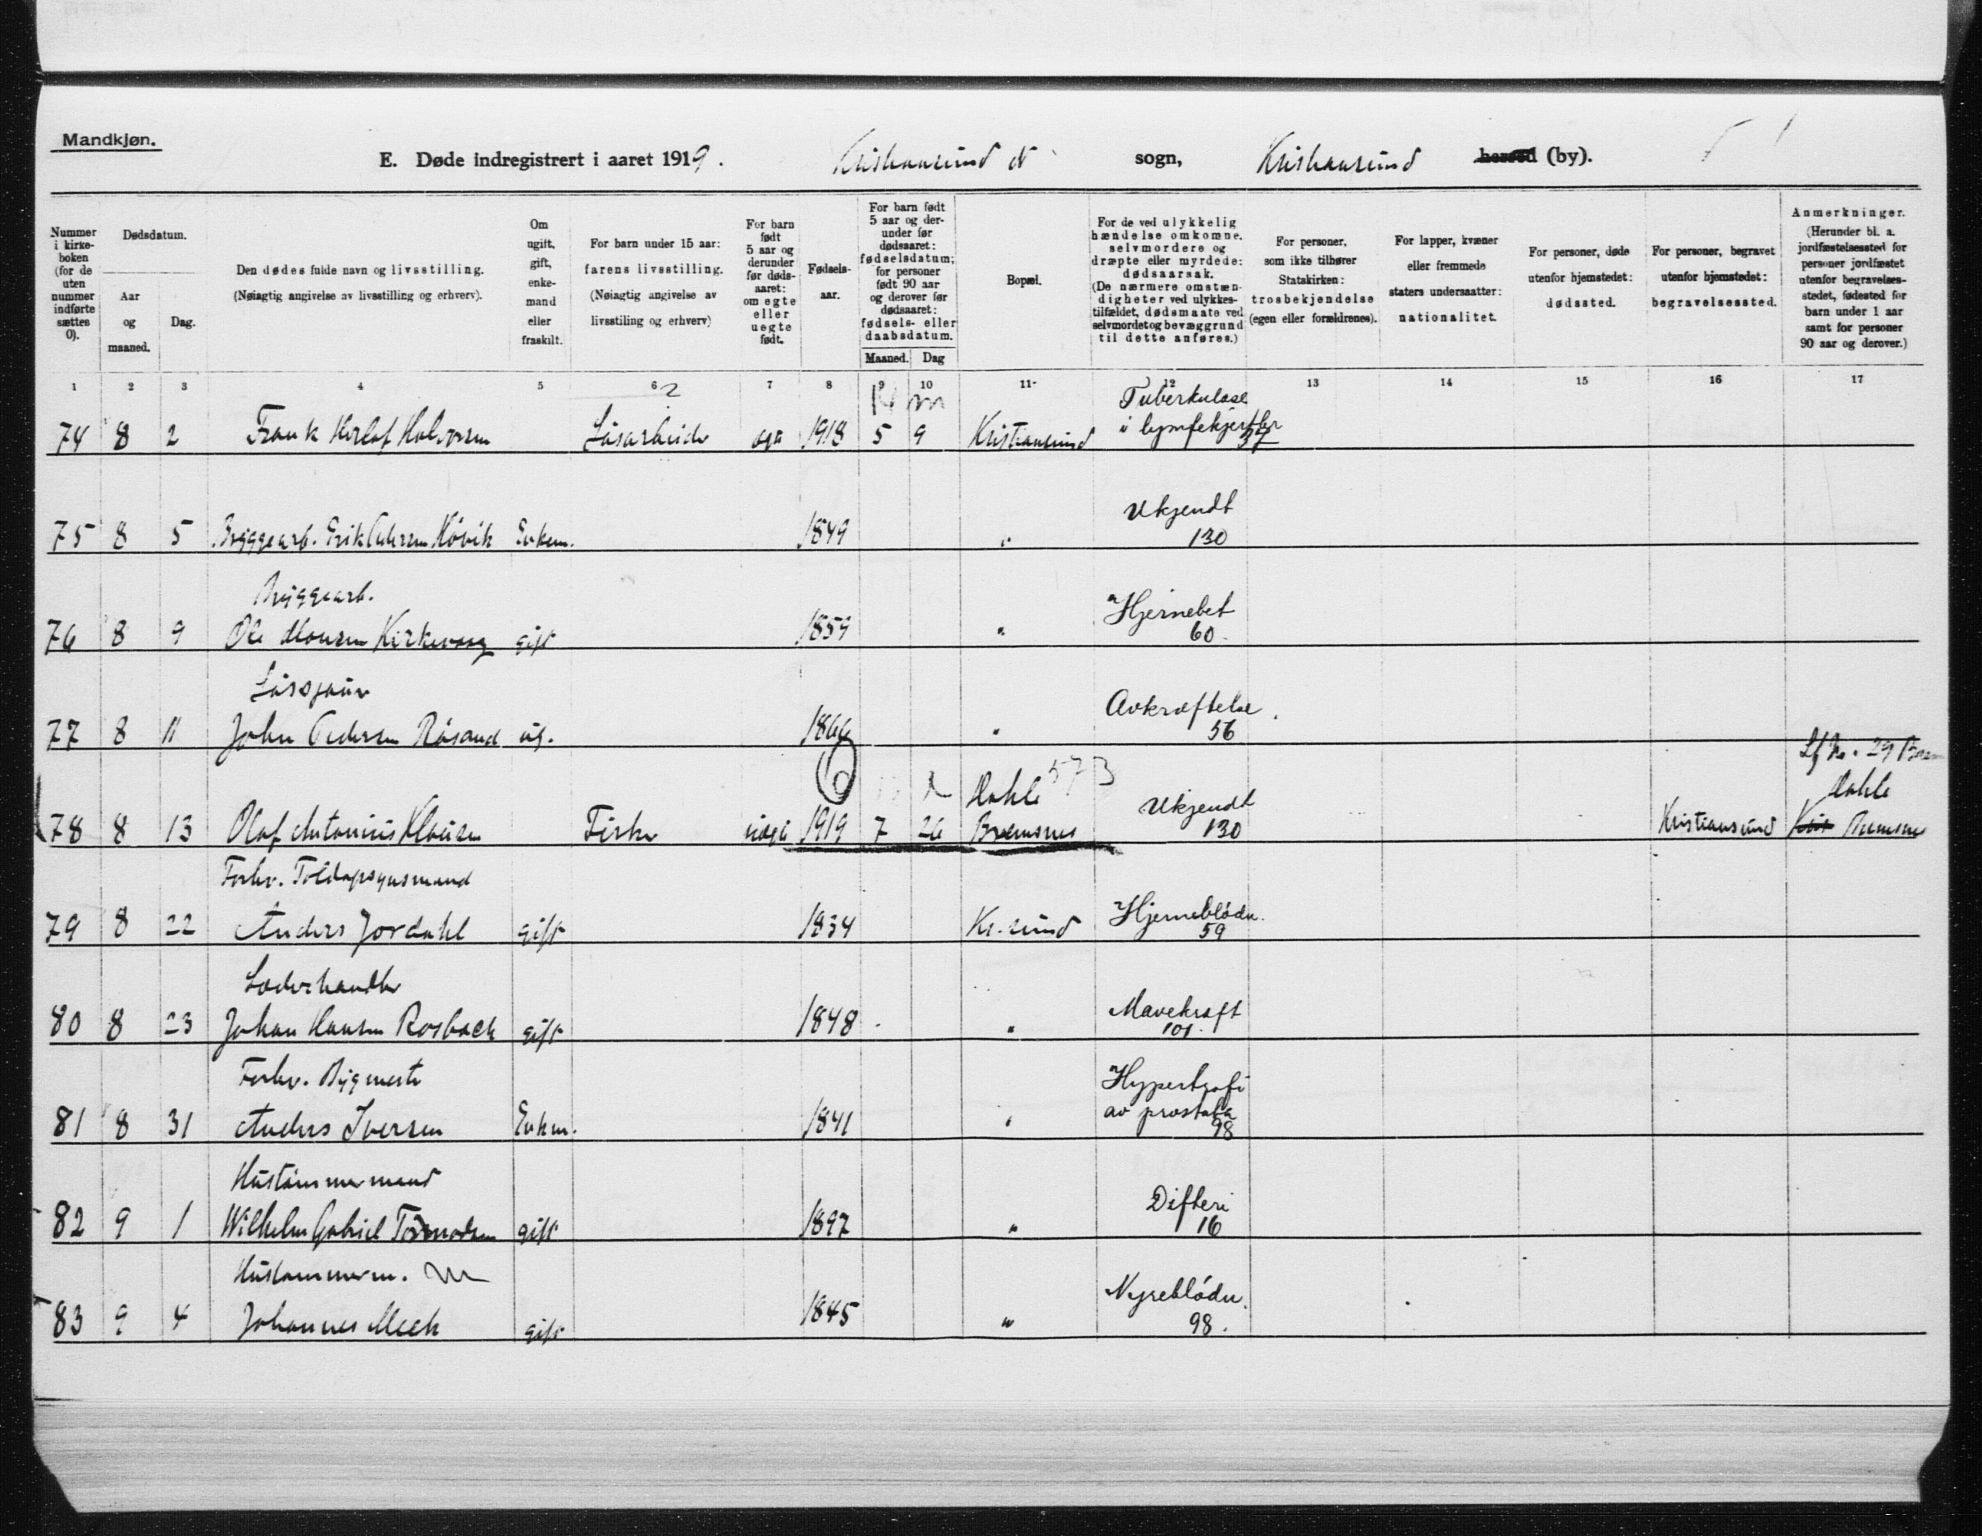 Mandkjøn.
E. Døde indregistrert i aaret 1919. Kristiansund N sogn, Kristiansund herred (by).
Nummer i kirkeboken (for de uten nummer indførte sættes 0).
Dødsdatum.
Aar og maaned.
Dag.
Den dødes fulde navn og livsstilling.
(Nøiagtig angivelse av livsstilling og erhverv).
Om ugift, gift, enkemand eller fraskilt.
For barn under 15 aar: farens livsstilling.
(Nøiagtig angivelse av livsstiling og erhverv)
For barn født 5 aar og derunder før dødsaaret: om egte eller uegte født.
Fødselsaar.
For barn født 5 aar og derunder før dødsaaret: fødselsdatum; for personer født 90 aar og derover før dødsaaret: fødsels- eller daabsdatum.
Maaned. Dag
Bopæl.
For de ved ulykkelig hændelse omkomne, selvmordere og dræpte eller myrdede: dødsaarsak.
(De nærmere omstændigheter ved ulykkestilfældet, dødsmaate ved selvmordet og bevæggrund til dette anføres.)
For personer, som ikke tilhører Statskirken: trosbekjendelse (egen eller forældrenes).
For lapper, kvæner eller fremmede staters undersaatter: nationalitet.
For personer, døde utenfor hjemstedet: dødssted.
For personer, begravet utenfor hjemstedet: begravelsessted.
Anmerkninger.
(Herunder bl. a. jordfæstelsessted for personer jordfæstet utenfor begravelsesstedet, fødested for barn under 1 aar samt for personer 90 aar og derover.)
1 2 3 4 5 6 7 8 9 10 11 12 13 14 15 16 17
2
Tuberkulose
74 8 2 Frank Herlof Halvorsen Løsarbeider 1918 5 9 Kristiansund i lymfekjertler
37
Ukjendt
75 8 5 Bryggearb. Erik Pedersen Høvik Enkem. 1849 " 130
Bryggearb. Hjernebet
76 8 9 Ole Monsen Kirkevaag gift 1859 " 60.
Løsgjæn Avkræftelse.
77 8 11 John Pedersen Røsand ug. 1866 " 56
Lf No. 29
6 Dahle 573 Ukjendt Dahle
78 8 13 Olaf Antonius Klausen Fisker uegte 1919 7 26 Bremsnes 130 Kristiansund Bremsnes
Forhv. Toldopsynsmand Hjerneblødn.
79 8 22 Anders Jordahl gift 1834 Kr.sund 59
Læderhandler Mavekræft
80 8 23 Johan Hansen Rosback gift 1848. " 101.
Forhv. Bygmester Hypertrofi
av prostata
81 8 31 Anders Iversen Enkm. 1841 " 98
Hustømmermand Difteri
82 9 1 Wilhelm Gabriel Tormodsen gift 1897 " 16
Hustømmerm. Nyreblødn.
83 9 4 Johannes Meek gift 1845 " 98.